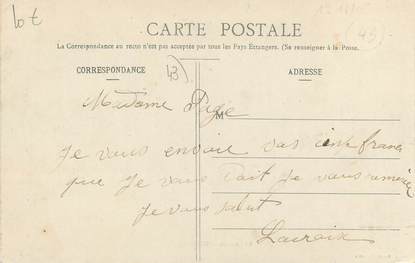 lot
(43)
CARTE POSTALE
La Correspondance au recto n'est pas acceptée par tous les Pays Etrangers. (Se renseigner à la Poste.
CORRESPONDANCE
43)
ADRESSE
Madame Page
M
Je vous envoie vos cinq franc
que Je vous doit Je vous remercie
Je vous salut
Lacroix